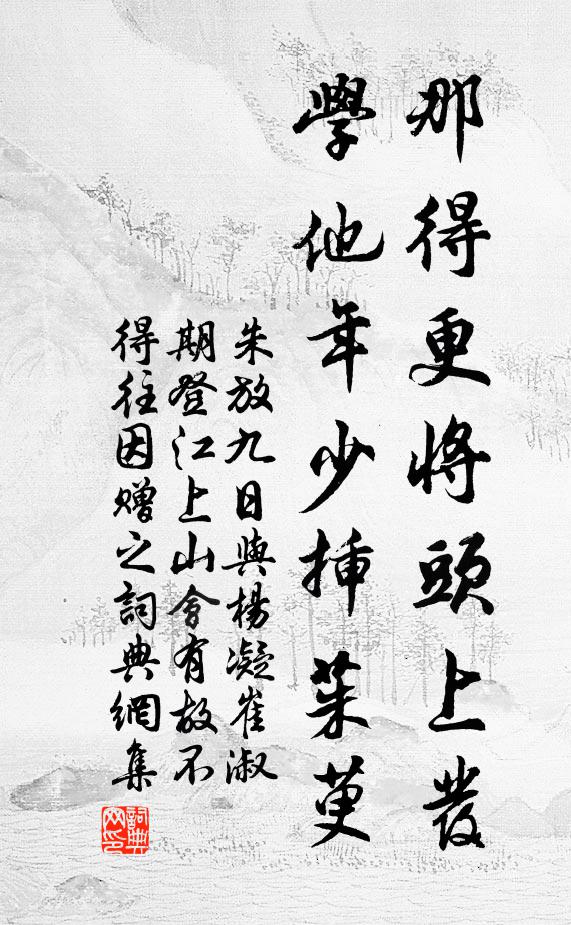 那得更將頭上髮
學他年少插茱萸
朱放九日與楊凝崔淑
期登江上山會有故不
得往因贈之詞典網集
詞典网印